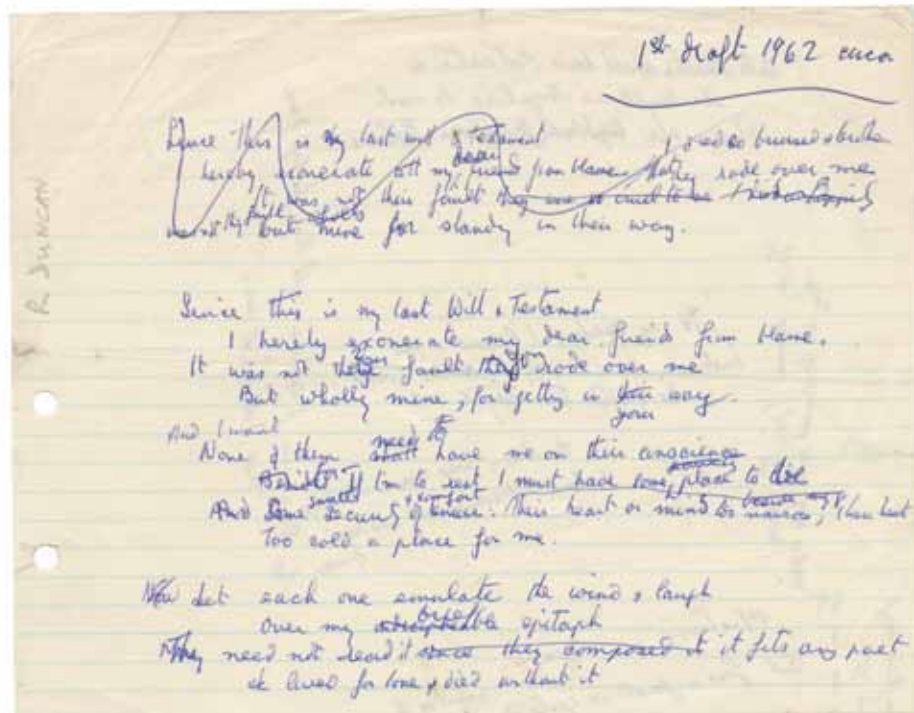 1st draft 1962 circa
R. DUNCAN
Since this is my last will & testament
I hereby exonerate all my dear friends from blame. That they rode over me
It was not their fault they
but mine for standing in their way.
Since this is my last Will & Testament
I hereby exonerate my dear friends from blame.
It was not their your fault they you rode over me
But wholly mine, for getting in their way.
your
And I want
None of them need to have me on their conscience
If I'm to rest I must have some place to die
And some small security & comfort of tenure. Their heart or mind too narrow, their heart
Too cold a place for me.
Now let each one emulate the wind & laugh
Over my brief epitaph
They need not read it since they composed it it fits any poet
He lived for love & died without it